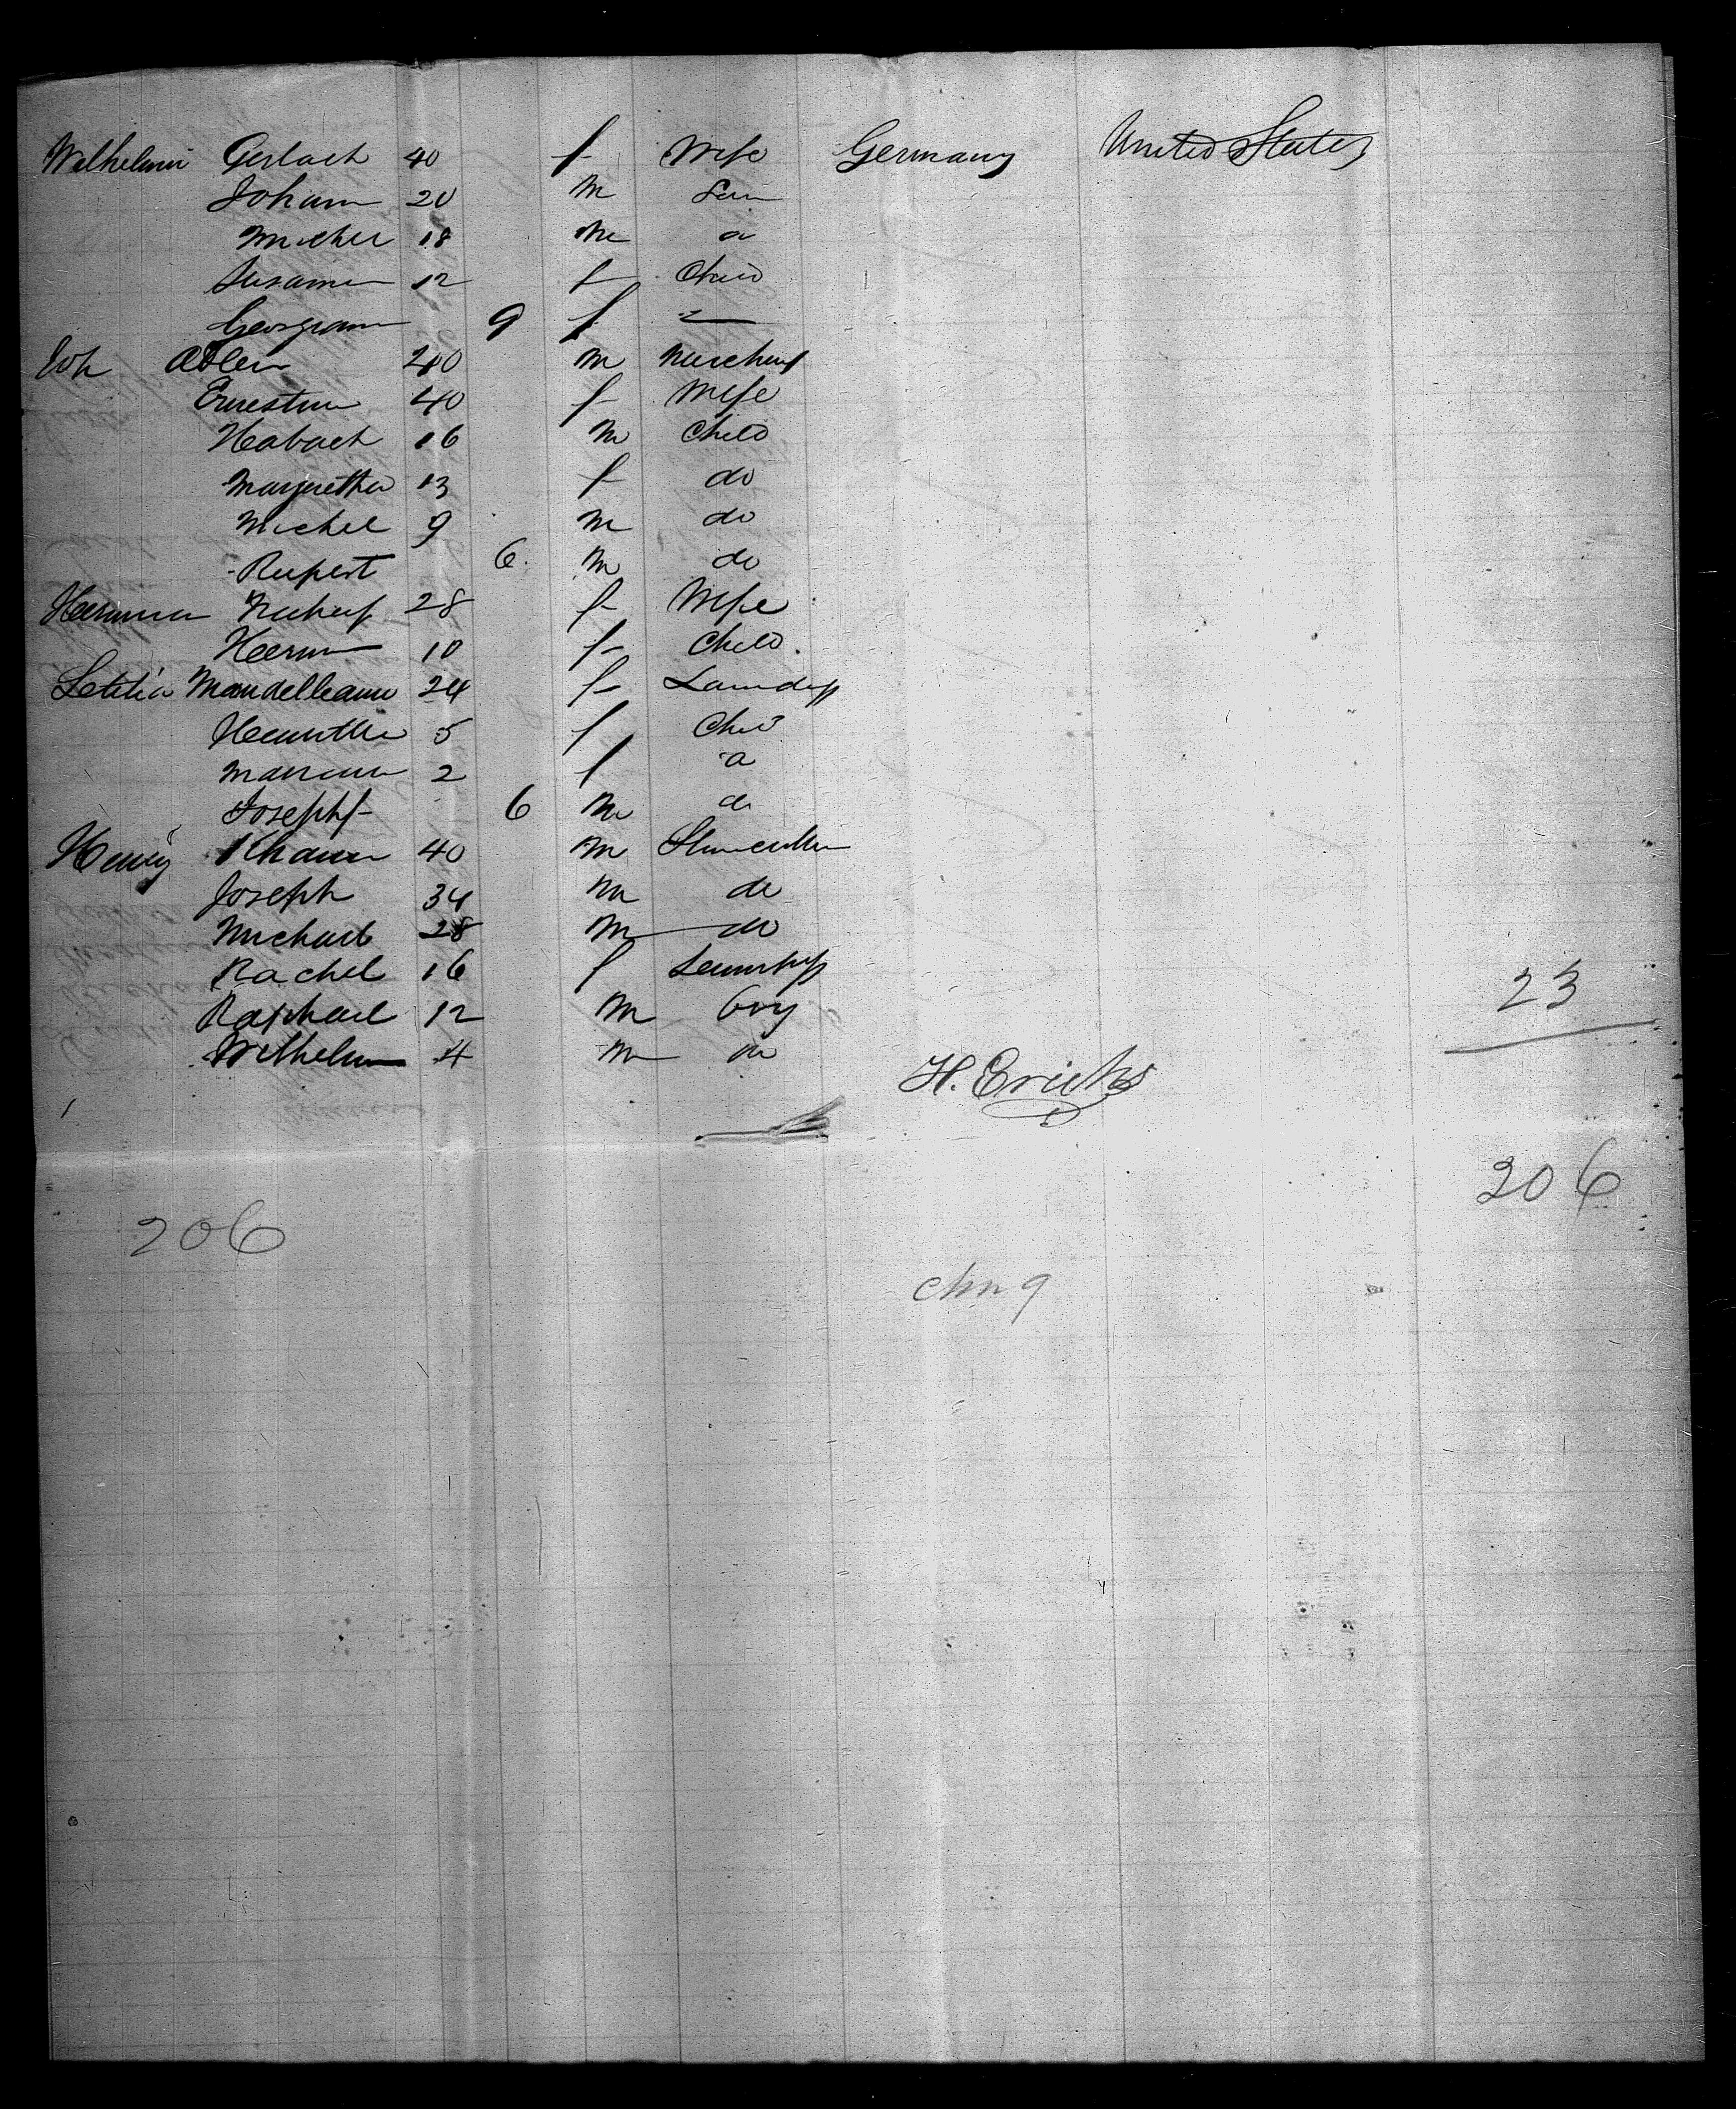 Wilhelmin Gerlach 40 f Wife Germany United States
Johann 20 m Son
Michel 18 m do
Susanne 12 f Child
9 f
Joh Adler 40 m
Ernestin 40 f Wife
16 m Child
Margaretha 13 f do
Michel 9 m do
Rupert 6 m do
28 f Wife
10 f Child
Letitia Mandelbaum 24 f
5 f Child
2 f do
Joseph 6 m do
Henry 40 m
Joseph 34 m do
Michael 28 m do
Rachel 16 f
Raphael 12 m boy
23
Wilhelm 4 m do
H. Erichs
206
206
chn 9